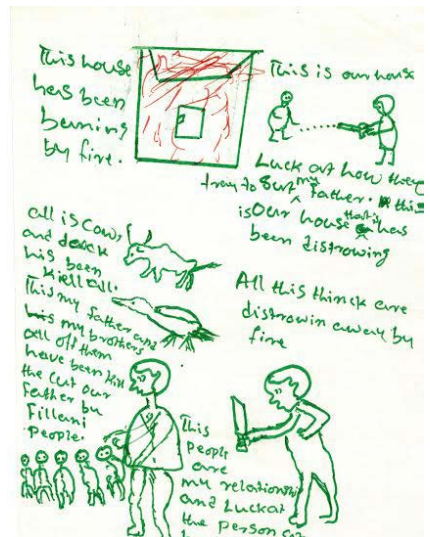 This house
has been
burning
by fire.
This is our house
Luck at how they
tray to Surt my father. this
is Our house that is has
been distrowing
all is cow,
and dack
his been
kiell all.
This my father and
his my brothers
all off them
have been kill
the cut our
Father by
Fillani
People.
All this thinck are
distrowin away by
fire
This
people
are
my relationship
and Luckat
the person